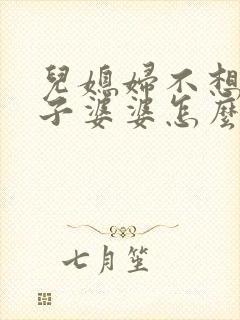 兒媳婦不想
子婆婆怎麼
七月笙